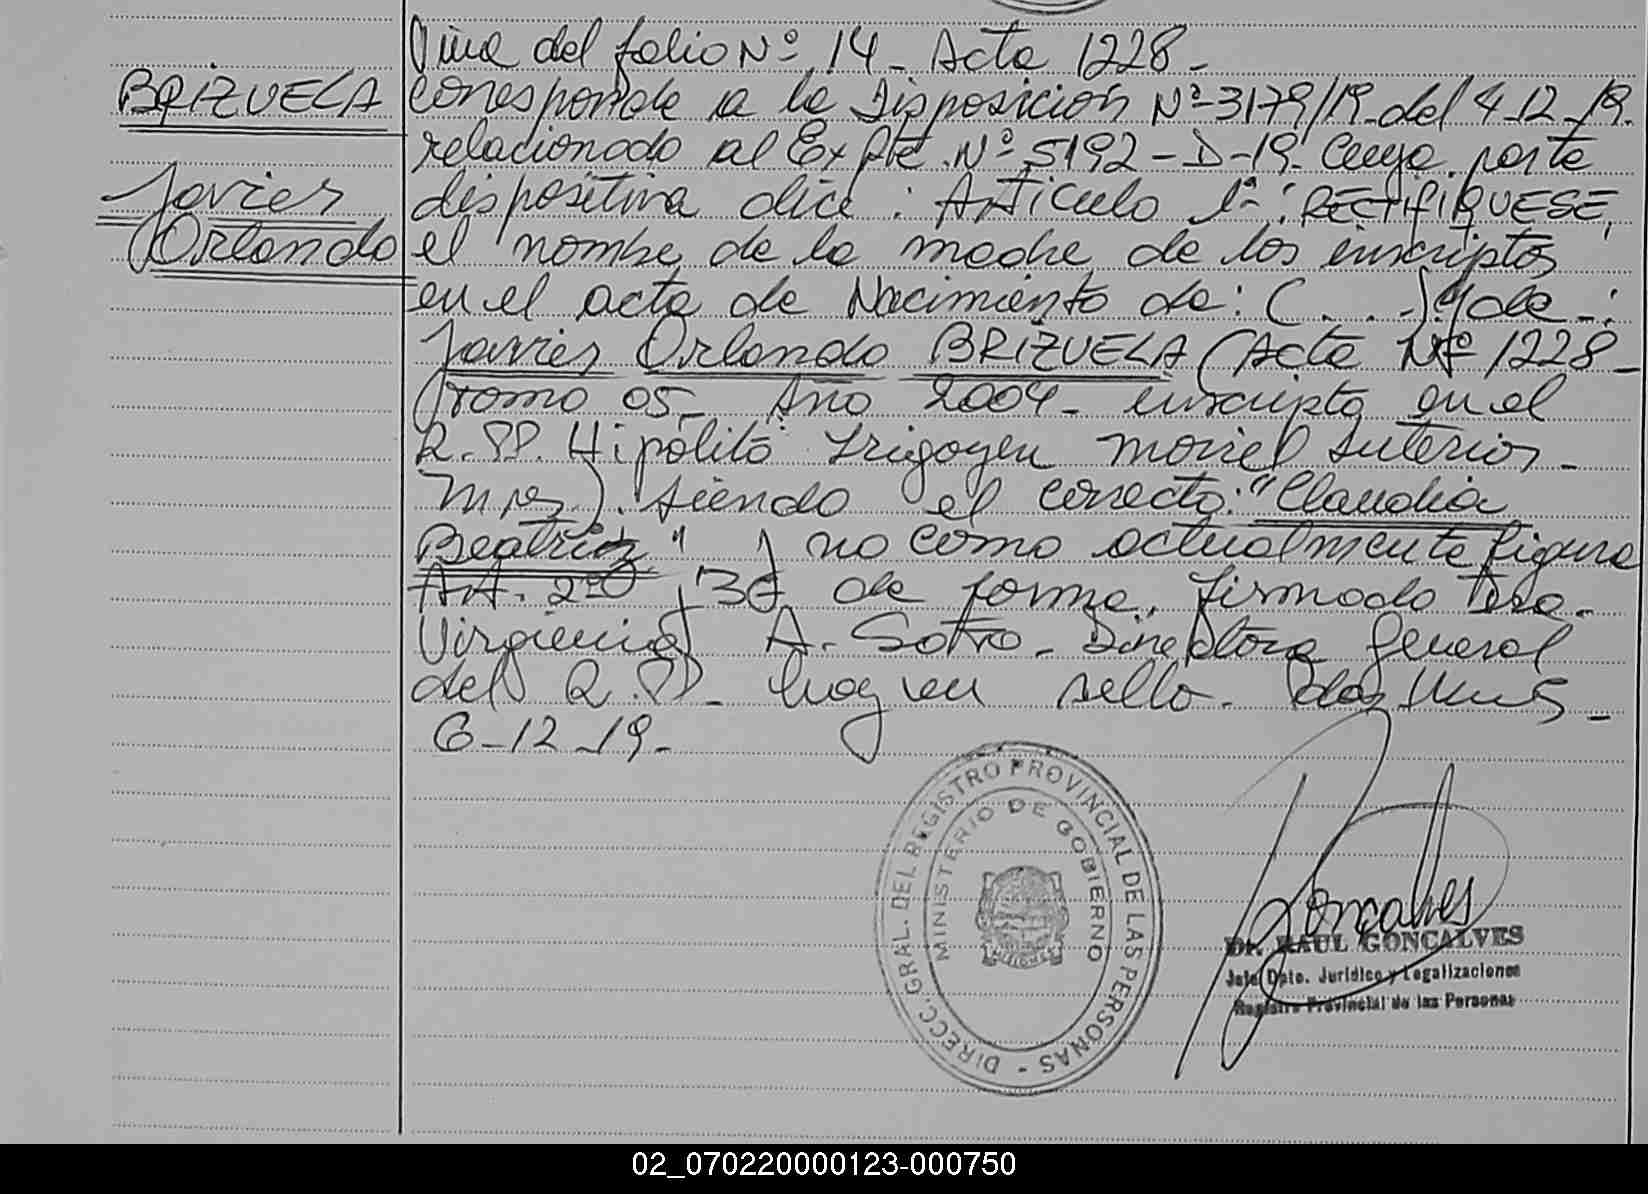 Viene del folio Nº 14 - Acta 1228 -
BRIZUELA
corresponde a la Disposición Nº 3179/19 - del 4-12-19.
relacionado al Expte. Nº 5192-D-19. Cuya parte
Javier
dispositiva dice: Articulo 1º: RECTIFIQUESE,
Orlando
el nombre de la madre de los inscriptos
en el acta de Nacimiento de: (...) y de -:
Javier Orlando BRIZUELA (Acta Nº 1228 -
Tomo 05 - Año 2004 - inscripta en el
R.PP. Hipólito Irigoyen movil Interior -
Mnes). siendo el correcto: "Claudia
Beatriz" y no como actualmente figura
AA. 2º y 3º de forma. Firmado Dra.
Virginia A. Sotto - Directora General
del R.PP. - hay un sello. Pdas Mnes -
6-12-19.
DIRECC. GRAL. DEL REGISTRO PROVINCIAL DE LAS PERSONAS -
MINISTERIO DE GOBIERNO
MISIONES
Goncalves
Dr. RAUL GONCALVES
Jefe Dpto. Jurídico y Legalizaciones
Registro Provincial de las Personas
02_070220000123-000750